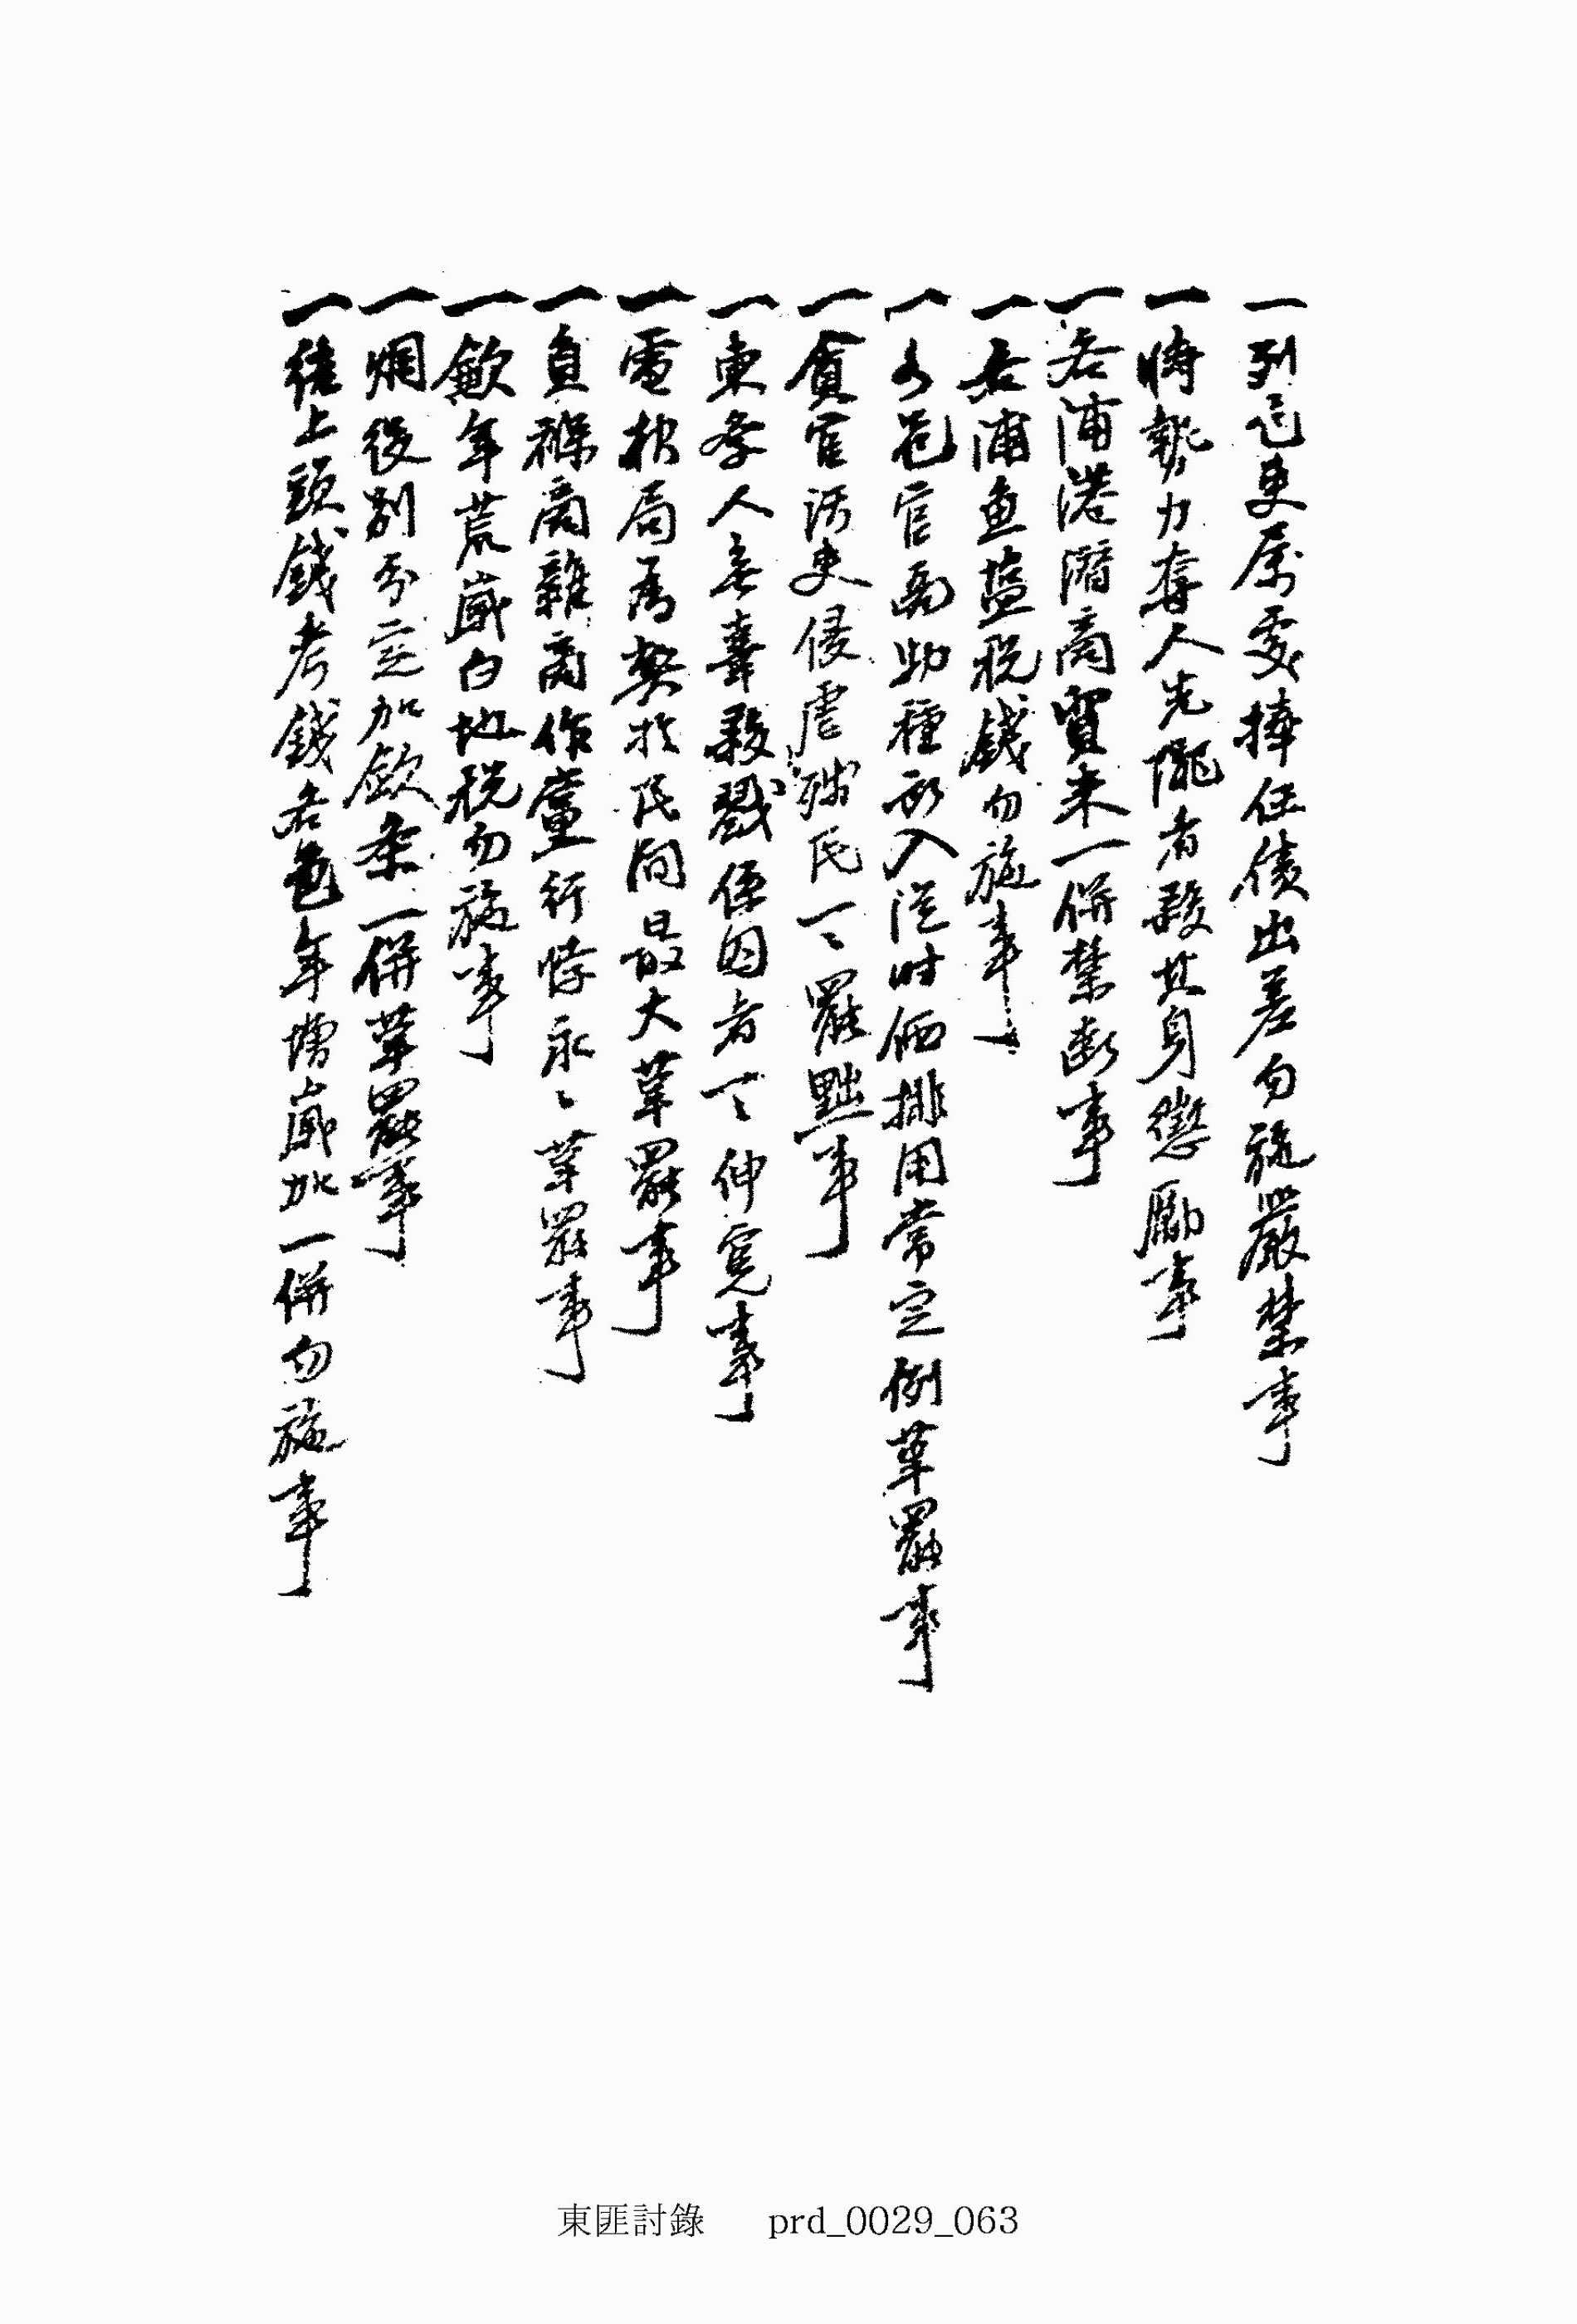 一列邑吏屬處捧任債出差勿施嚴禁事
一恃勢力奪人先隴者殺其身懲勵事
一各浦港潛商貿米一倂禁斷事
一各浦魚塩稅錢勿施事
一各邑官衙物種所入從時価排用常定例革罷事
一貪官汚吏侵虐殘民一一罷黜事
一東學人無辜殺戮係囚者一一伸冤事
一電報局爲弊於民間最大革罷事
一負褓商雜商作黨行悖永々革罷事
一歉年荒歲白地稅勿施事
一烟役別分定加歛条一倂革罷事
一結上頭錢考錢名色年增歲加一倂勿施事
東匪討錄 prd_0029_063